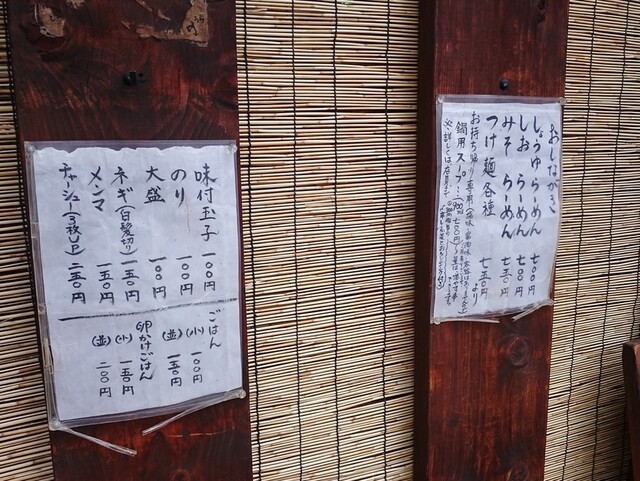 おしながき
しょうゆらーめん 七〇〇円
しお らーめん 七〇〇円
みそ らーめん 七五〇円
つけ麺各種 七五〇円より
味付玉子 一〇〇円
のり 一〇〇円
大盛 一〇〇円
ネギ(白髪切り) 一五〇円
メンマ 一五〇円
チャーシュー(三枚以上) 二五〇円
ごはん
(小) 一〇〇円
(並) 一五〇円
卵かけごはん
(小) 一五〇円
(並) 二〇〇円